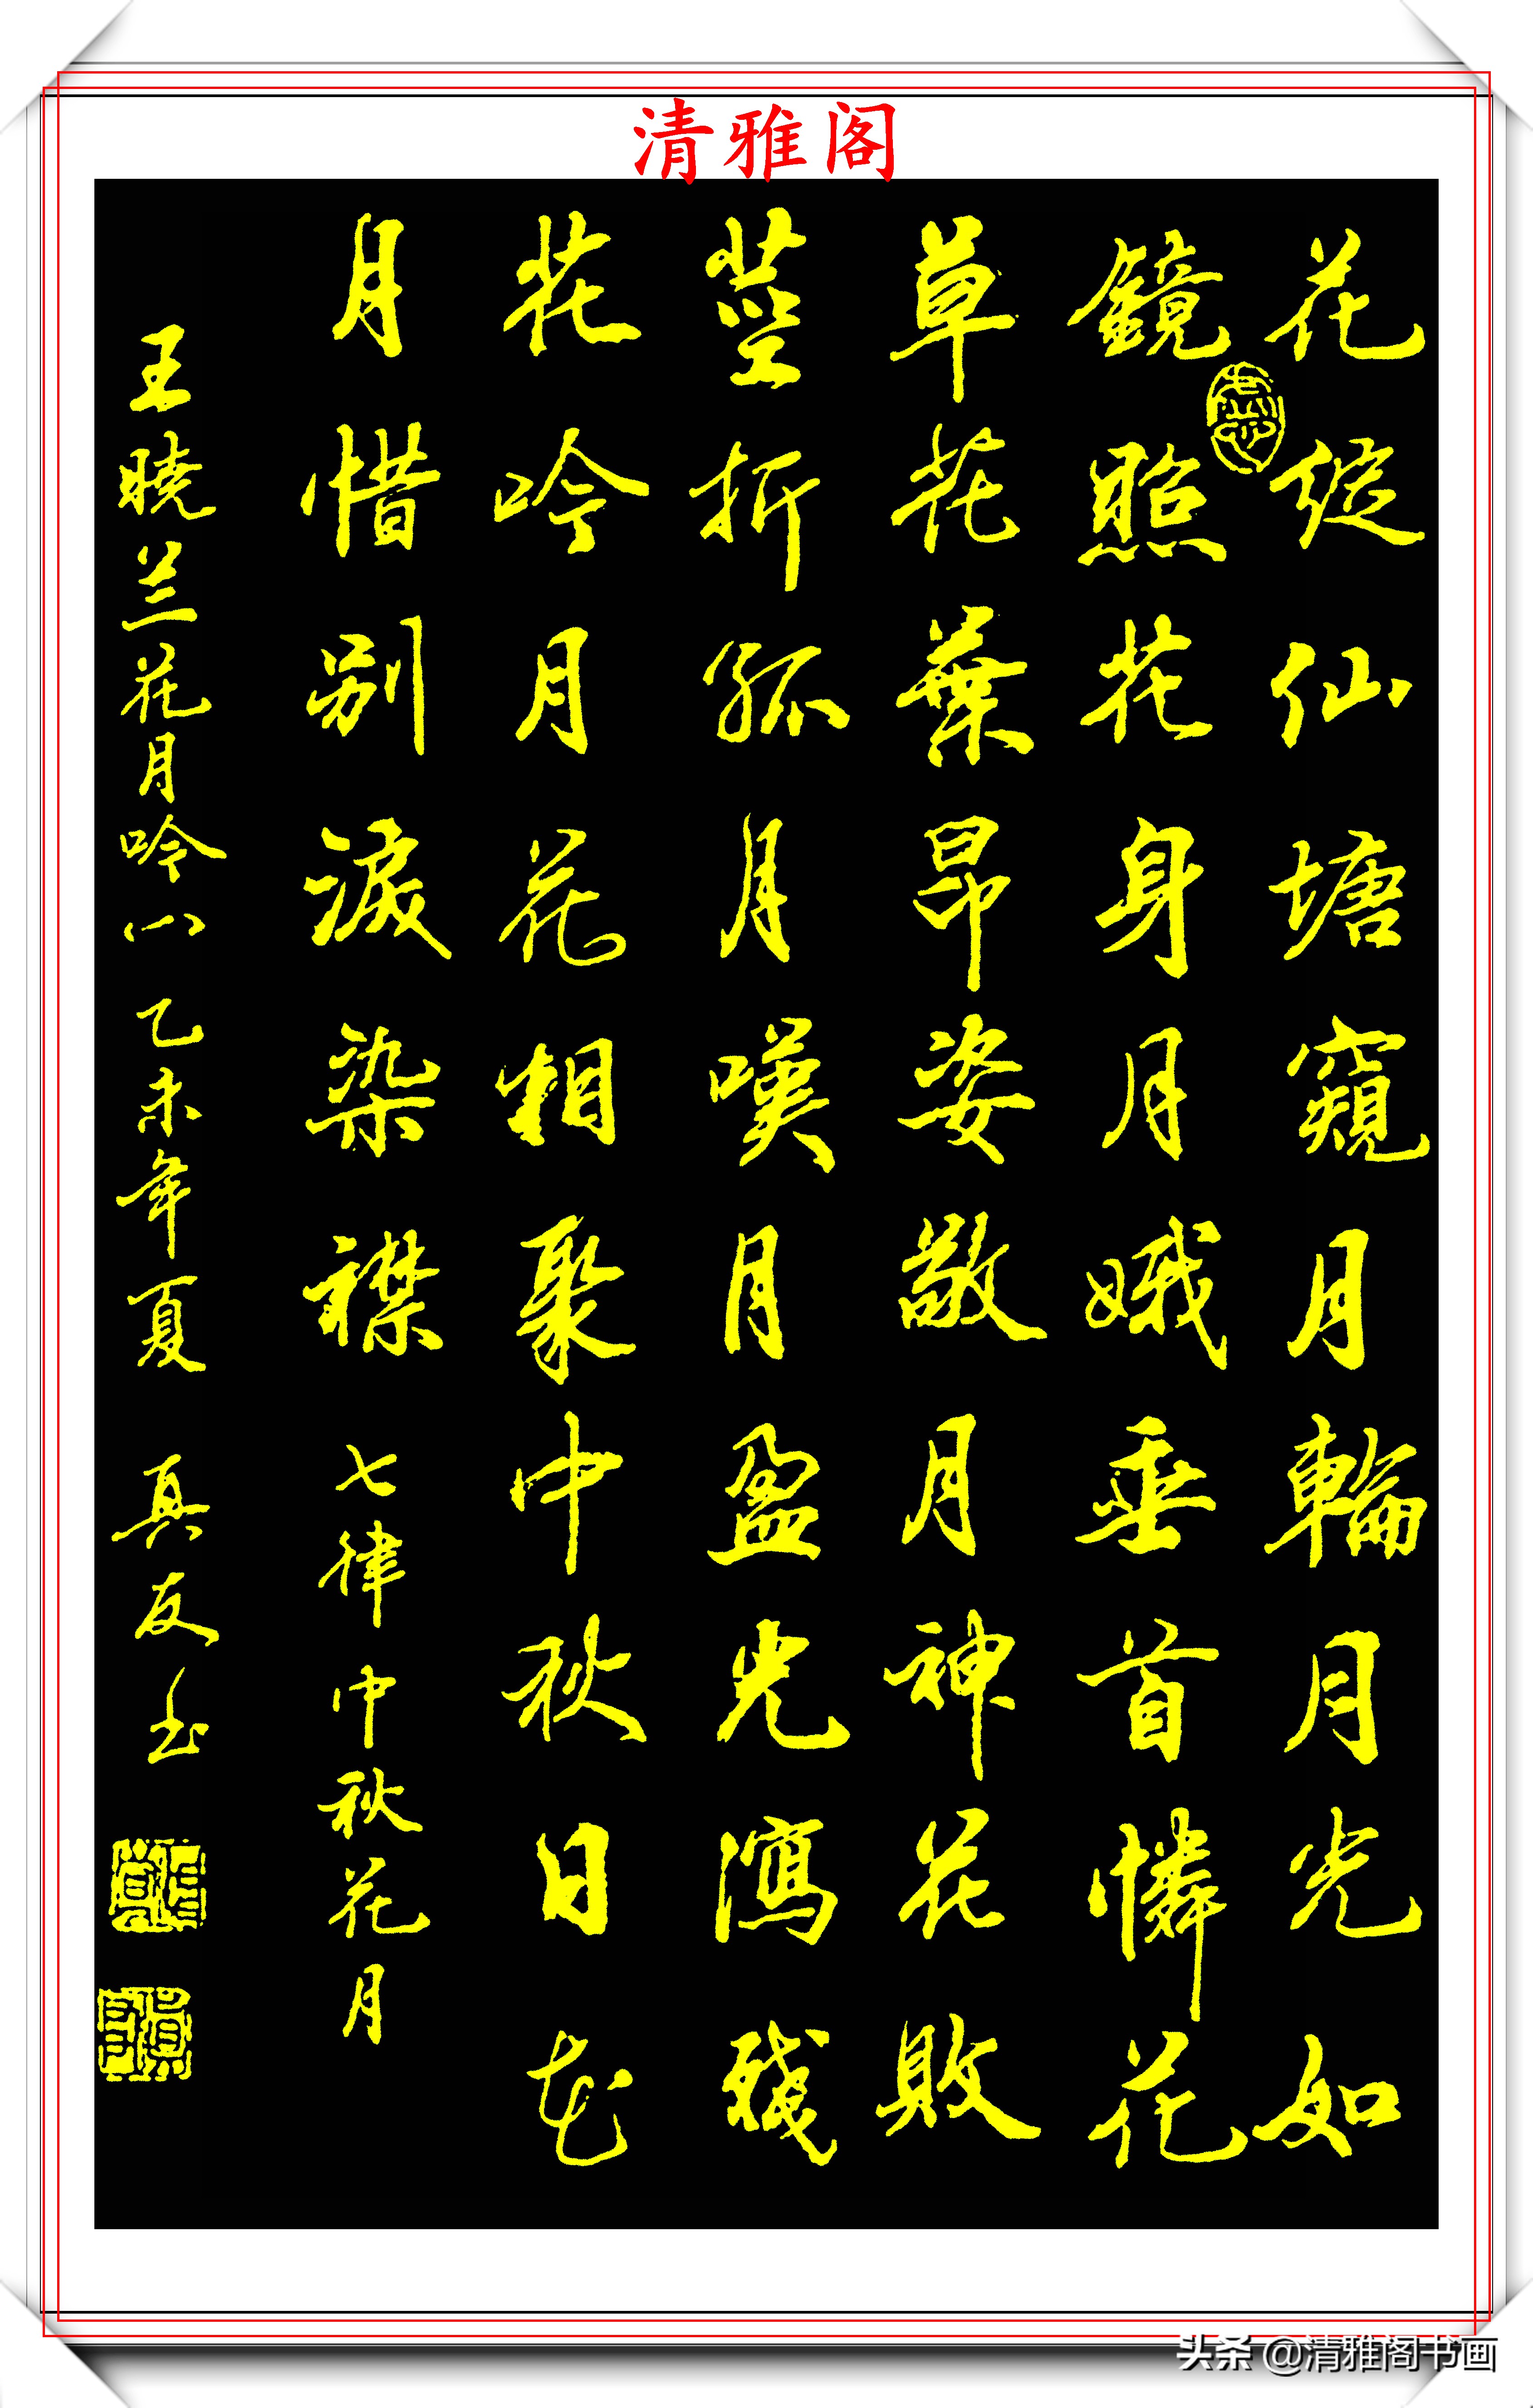 清雅阁
花绽仙塘窺月輪月光如
鏡照花身月娥垂首憐花
草花葉昂姿敬月神花敗
莖折孤月嘆月盈光瀉殘
花吟月花相聚中秋日花
月惜别淚染襟
七律中秋花月
王晓兰花月吟八乙未年夏真友书
头条@清雅阁书画